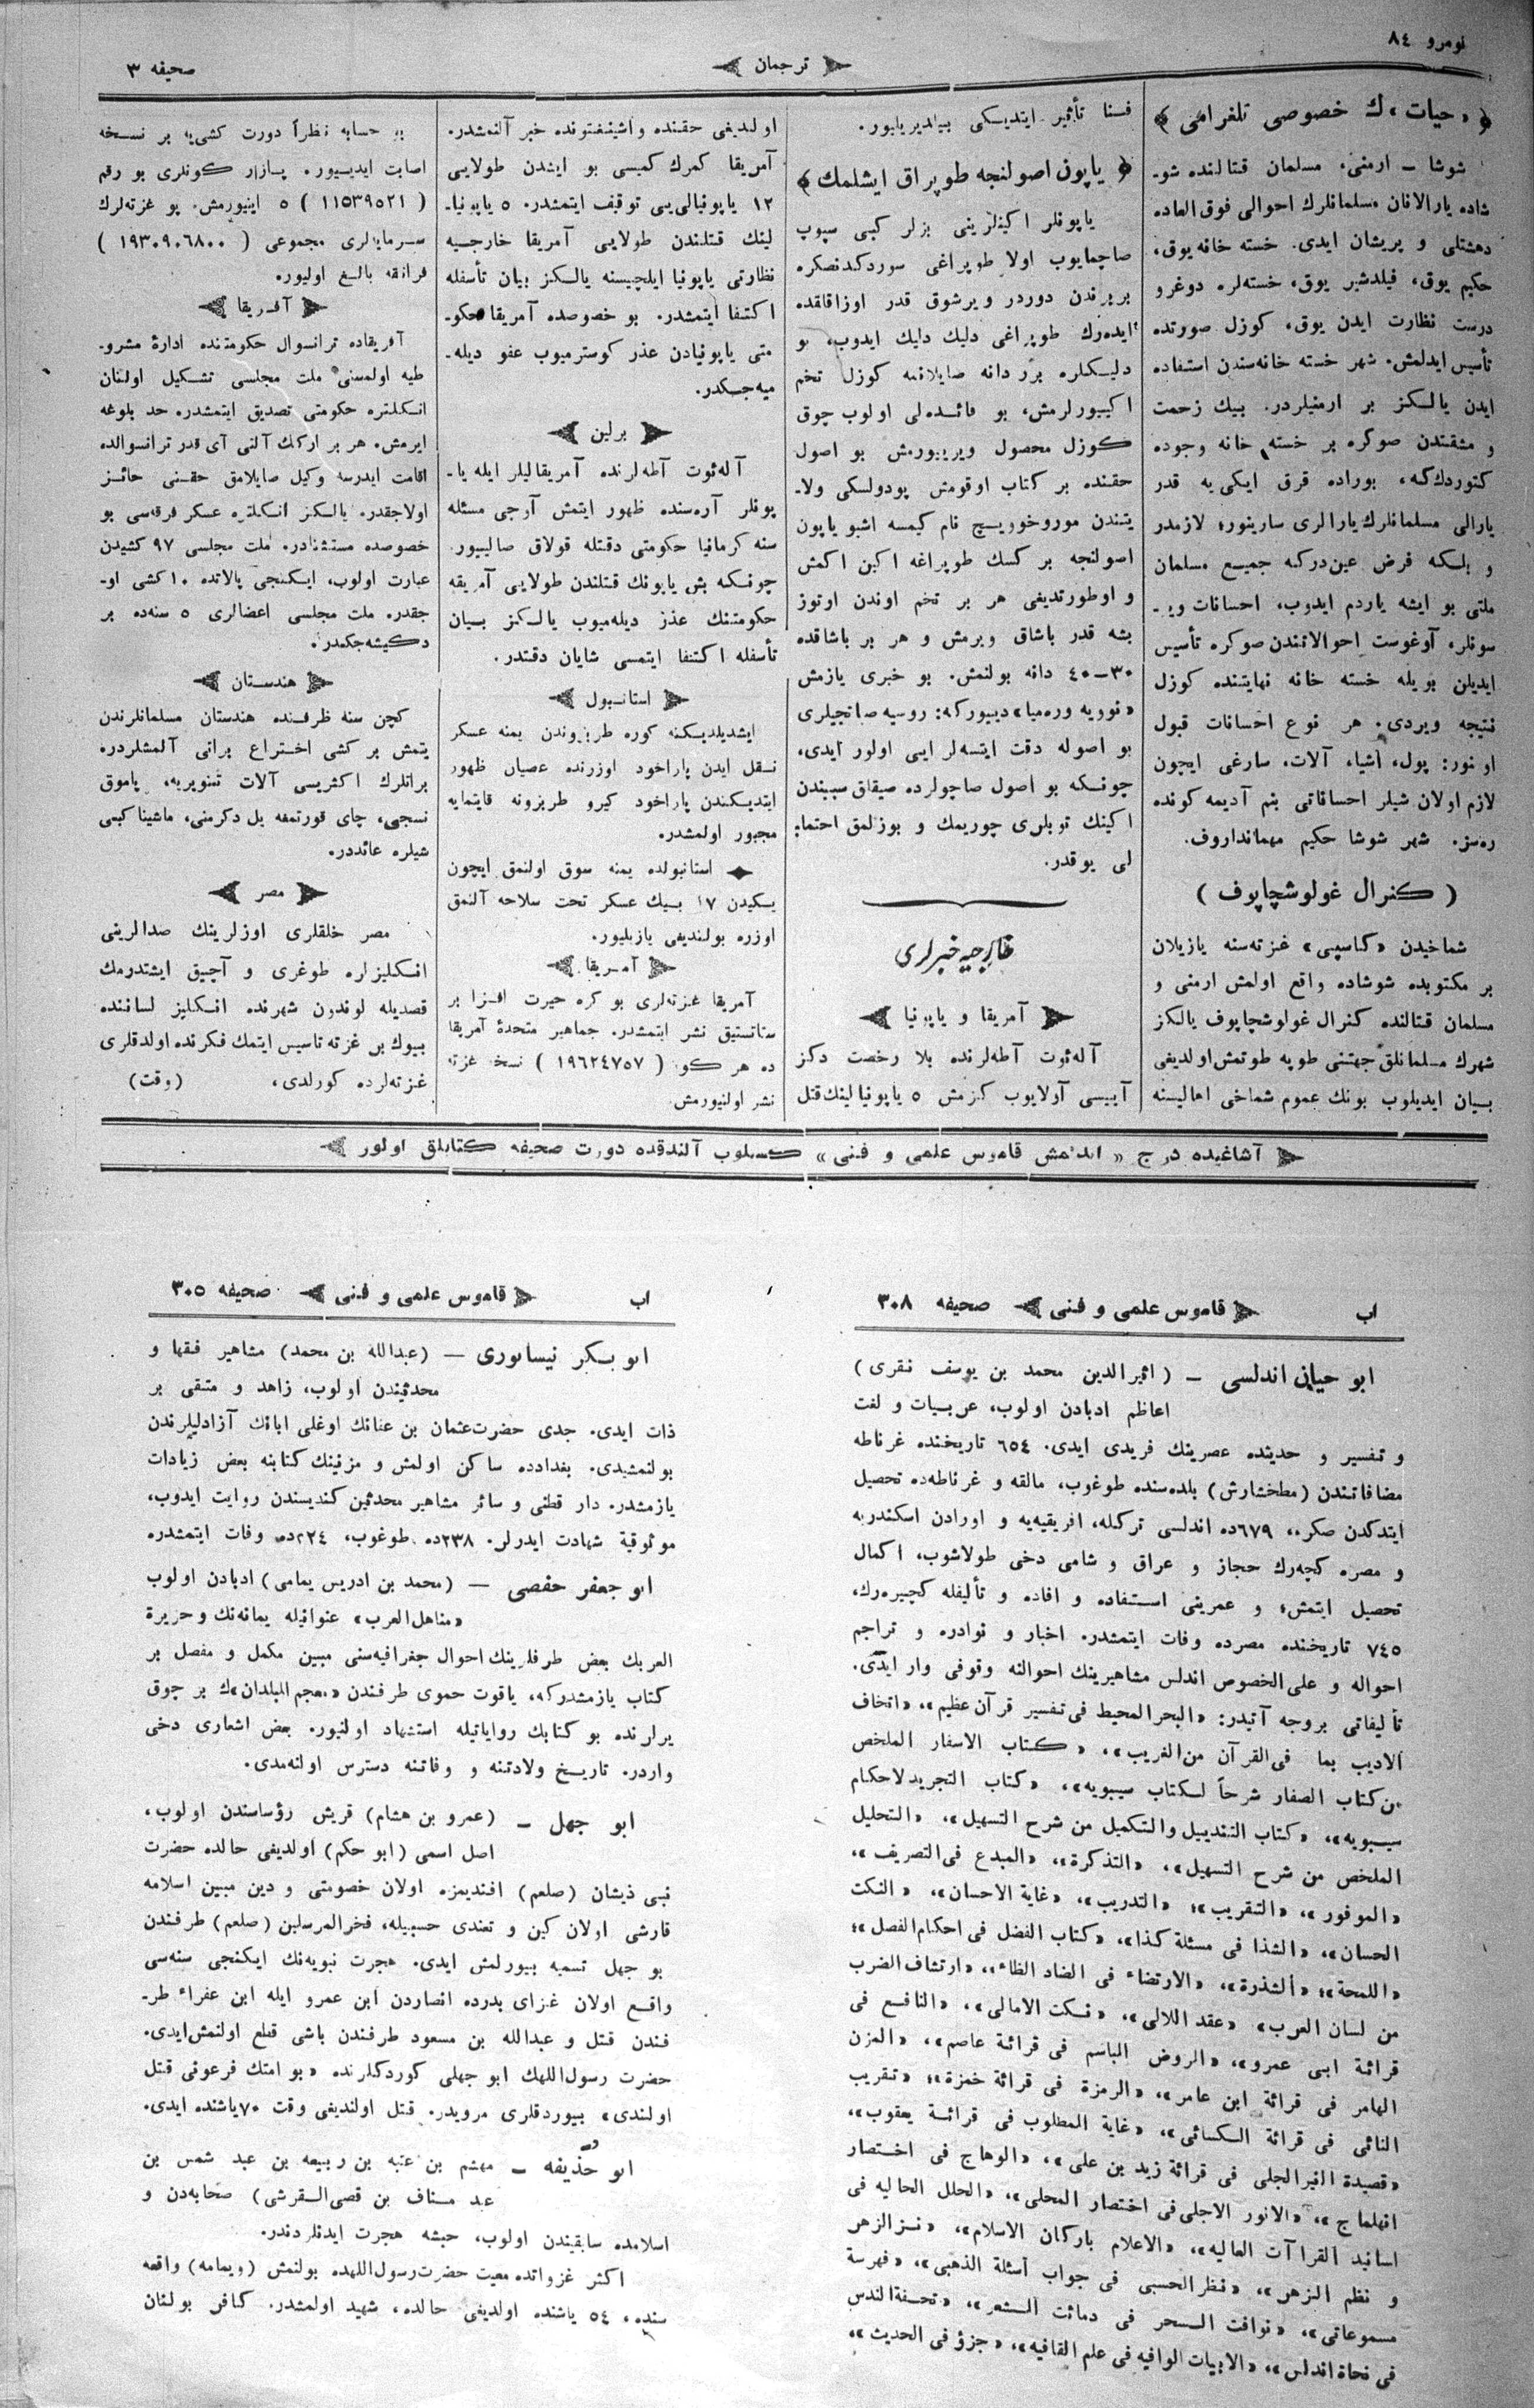 نومرو ٨٤
ترجمان
صحیفه ٣
«حیات» ك خصوصی تلغرامی
شوشا – ارمنی، مسلمان قتالنده شو-
شاده یارالانان مسلمانلرك احوالی فوق العاده
دهشتلی و پریشان ایدی. خسته خانه یوق،
حکیم یوق، فیلدشیر یوق، خسته‌لره دوغرو
درست نظارت ایدن یوق، کوزل صورتده
تأسیس ایدلمش. شهر خسته خانه‌سندن استفاده
ایدن یالکز بر ارمنیلردر. بیك زحمت
و مشقتدن صوکره بر خسته خانه وجوده
کتوردك‌که، بوراده قرق ایکی‌یه قدر
یارالی مسلمانلرك یارالری سارینور؛ لازمدر
و بلکه فرض عین‌درکه جمیع مسلمان
ملتی بو ایشه یاردم ایدوب، احسانات ویر-
سونلر، آوغوست احوالاتندن صوکره تأسیس
ایدیلن بویله خسته خانه نهایتنده کوزل
نتیجه ویردی. هر نوع احسانات قبول
اونور: پول، اشیاء آلات، سارغی ایچون
لازم اولان شیلر احساناتی بنم آدیمه کونده
ره‌سز. شهر شوشا حکیم مهمانداروف.
( کنرال غولوشچاپوف )
شماخیدن «کاسپی» غزته‌سنه یازیلان
بر مکتوبده شوشاده واقع اولمش ارمنی و
مسلمان قتالنده کنرال غولوشچاپوف یالکز
شهرك مسلمانلق جهتنی طوپه طوتمش اولدیغی
بیان ایدیلوب بونك عموم شماخی اهالیسنه
فسنا تأثیر ایتدیکی بیلدیریلیور.
یاپون اصولنجه طوپراق ایشلمك
یاپونلر اکینلرینی بزلر کبی سپوب
صاچمایوب اولا طوپراغی سوردکدنصکره
بربرندن دوردر ویرشوق قدر اوزاقلقده
ایده‌رك طوپراغی دلیك دلیك ایدوب، بو
دلیکلره برر دانه صایلانمه کوزل تخم
اکیبورلرمش، بو فائده‌لی اولوب چوق
کوزل محصول ویریبورمش بو اصول
حقنده بر کتاب اوقومش پودولسکی ولا-
یتندن موروخوویچ نام کیمسه اشبو یاپون
اصولنجه بر کسك طوپراغه اکین اکمش
و اوطورتدیغی هر بر تخم اوندن اوتوز
بشه قدر باشاق ویرمش و هر بر باشاقده
٣٠–٤٠ دانه بولنمش. بو خبری یازمش
«نوویه وره‌میا» دیبورکه: روسیه صبانجیلری
بو اصوله دقت ایتسه‌لر ایبی اولور ایدی،
چونکه بو اصول صاچولرده صیقلق سببندن
اکینك توبلری چوریمك و بوزلمق احتما-
لی یوقدر.
خارجیه خبرلری
آمریقا و یاپونیا
آله‌ئوت آطه‌لرنده بلا رخصت دکز
آییسی آولایوب کزمش ٥ یاپونیالینك قتل
اولدیغی حقنده واشینغتونده خبر آلنمشدر.
آمریقا کمرك کمیسی بو ایشدن طولایی
١٢ یاپونیالی‌یی توقیف ایتمشدر. ٥ یاپونیا-
لینك قتلندن طولایی آمریقا خارجیه
نظارتی یاپونیا ایلچیسنه یالکز بیان تأسفله
اکتفا ایتمشدر. بو خصوصده آمریقا حکو-
متی یاپونیادن عذر کوسترمیوب عفو دیله-
میه‌جکدر.
برلین
آله‌ئوت آطه‌لرنده آمریقالیلر ایله یا-
پونلر آره‌سنده ظهور ایتمش آوجی مسئله
سنه کرمانیا حکومتی دقتله قولاق صالیبور.
چونکه بش یاپونك قتلندن طولایی آمریقه
حکومتنك عذر دیله‌میوب یالکز بیان
تأسفله اکتفا ایتمسی شایان دقتدر.
استانبول
ایشدیلدیکنه کوره طربزوندن یمنه عسکر
نقل ایدن پاراخود اوزرنده عصیان ظهور
ایتدیکندن پاراخود کیرو طربزونه قایتمایه
مجبور اولمشدر.
استانبولده یمنه سوق اولنمق ایچون
یکیدن ١٧ بیك عسکر تحت سلاحه آلنمق
اوزره بولندیغی یازیلیور.
آمریقا
آمریقا غزته‌لری بو کره حیرت افزا بر
ستاتستیق نشر ایتمشدر. جماهیر متحدهٔ آمریقا
ده هر کون ( ١٩٦٢٤٧٥٧ ) نسخه غزته
نشر اولنیورمش.
بو حسابه نظراً دورت کشی‌یه بر نسخه
اصابت ایدیور. پازار کونلری بو رقم
( ١١٥٣٩٥٢١ ) ٥ اینیورمش. بو غزته‌لرك
سرمایه‌لری مجموعی ( ١٩٣٠٩٠٦٨٠٠ )
فرانقه بالغ اولیور.
آفریقا
آفریقاده ترانسوال حکومتنده ادارهٔ مشرو-
طیه اولمسنی ملت مجلسی تشکیل اولنان
انکلتره حکومتی تصدیق ایتمشدر. حد بلوغه
ایرمش. هر بر ارکك آلتی آی قدر ترانسوالده
اقامت ایدرسه وکیل صایلامق حقنی حائز
اولاجقدر. یالکز انکلتره عسکر فرقه‌سی بو
خصوصده مستثنادر. ملت مجلسی ٩٧ کشیدن
عبارت اولوب، ایکنجی پالاتده ١٠ کشی او-
جقدر. ملت مجلسی اعضالری ٥ سنه‌ده بر
دکیشه‌جکدر.
هندستان
کچن سنه ظرفنده هندستان مسلمانلرندن
یتمش بر کشی اختراع براتی آلمشلردر.
براتلرك اکثریسی آلات تنویریه، پاموق
نسجی، چای قورتمغه یل دکرمنی، ماشینا کبی
شیلره عائددر.
مصر
مصر خلقلری اوزلرینك صدالرینی
انکلیزلره طوغری و آچیق ایشتدرمك
قصدیله لوندون شهرنده انکلیز لساننده
بیوك بر غزته تاسیس ایتمك فکرنده اولدقلری
غزته‌لرده کورلدی. (وقت)
آشاغیده درج «ایدلمش قاموس علمی و فنی» کسیلوب آلندقده دورت صحیفه کتابلق اولور
اب قاموس علمی و فنی صحیفه ٣٠٨
ابو حیان اندلسی – ( اثیرالدین محمد بن یوسف نقری )
اعاظم ادبادن اولوب، عربیات و لغت
و تفسیر و حدیثده عصرینك فریدی ایدی. ٦٥٤ تاریخنده غرناطه
مضافاتندن (مطخشارش) بلده‌سنده طوغوب، مالقه و غرناطه‌ده تحصیل
ایتدکدن صکره، ٦٧٩ده اندلسی ترکله، افریقیه‌یه و اورادن اسکندریه
و مصره کچه‌رك حجاز و عراق و شامی دخی طولاشوب، اکمال
تحصیل ایتمش؛ و عمرینی استفاده و افاده و تألیفله کچیره‌رك،
٧٤٥ تاریخنده مصرده وفات ایتمشدر. اخبار و نوادره و تراجم
احواله و علی الخصوص اندلس مشاهیرینك احوالنه وقوفی وار ایدی.
تألیفاتی بروجه آتیدر: «البحر المحیط فی تفسیر قرآن عظیم»، «اتحاف
الادیب بما فی القرآن من الغریب»، «کتاب الاسفار الملخص
من کتاب الصفار شرحاً لکتاب سیبویه»، «کتاب التجرید لاحکام
سیبویه»، «کتاب التذییل والتکمیل من شرح التسهیل»، «التحلیل
الملخص من شرح التسهیل»، «التذکرة»، «المبدع فی التصریف»،
«الموفور»، «التقریب»؛ «التدریب»، «غایة الاحسان»، «النکت
الحسان»، «الشذا فی مسئلة کذا»، «کتاب الفضل فی احکام الفصل»؛
«اللمحة»؛ «الشذرة»، «الارتضاء فی الضاد الظاء»، «ارتشاف الضرب
من لسان العرب» «عقد اللالی»، «نکت الامالی»، «النافع فی
قرائة ابی عمرو»، «الروض الباسم فی قرائة عاصم»، «المزن
الهامر فی قرائة ابن عامر»، «الرمزة فی قرائة حمزة»؛ «تقریب
النائی فی قرائة الکسائی»، «غایة المطلوب فی قرائة یعقوب»،
«قصیدة النیر الجلی فی قرائة زید بن علی»، «الوهاج فی اختصار
المنهاج»، «الانور الاجلی فی اختصار المحلی»، «الحلل الحالیه فی
اسانید القراآت العالیه»، «الاعلام بارکان الاسلام»، «نثر الزهر
و نظم الزهر»، «نظر الحسبی فی جواب أسئلة الذهبی»، «فهرسة
مسموعاتی»، «نوافث السحر فی دماثت الشعر»، «تحفة الندس
فی نحاة اندلس»، «الابیات الوافیه فی علم القافیه»، «جزؤ فی الحدیث»،
اب قاموس علمی و فنی صحیفه ٣٠٥
ابو بکر نیسابوری – (عبدالله بن محمد) مشاهیر فقها و
محدثیندن اولوب، زاهد و متقی بر
ذات ایدی. جدی حضرت عثمان بن عفانك اوغلی ابانك آزادلیلرندن
بولنمشیدی. بغدادده ساکن اولمش و مزنینك کتابنه بعض زیادات
یازمشدر. دار قطنی و سائر مشاهیر محدثین کندیسندن روایت ایدوب،
موثوقیة شهادت ایدرلر. ٢٣٨ده طوغوب، ٢٢٤ده وفات ایتمشدر.
ابو جعفر حفصی – (محمد بن ادریس یمامی) ادبادن اولوب
«مناهل العرب» عنوانیله یمامه‌نك و جزیرة
العربك بعض طرفلرینك احوال جغرافیه‌سنی مبین مکمل و مفصل بر
کتاب یازمشدرکه، یاقوت حموی طرفندن «معجم البلدان»ك بر چوق
یرلرنده بو کتابك روایاتیله استشهاد اولنیور. بعض اشعاری دخی
واردر. تاریخ ولادتنه و وفاتنه دسترس اوله‌مدی.
ابو جهل – (عمرو بن هشام) قریش رؤساسندن اولوب،
اصل اسمی (ابو حکم) اولدیغی حالده حضرت
نبی ذیشان (صلعم) افندیمزه اولان خصومتی و دین مبین اسلامه
قارشی اولان کین و تعندی حسبیله، فخر المرسلین (صلعم) طرفندن
بو جهل تسمیه بیورلمش ایدی. هجرت نبویه‌نك ایکنجی سنه‌سی
واقع اولان غزای بدرده انصاردن ابن عمرو ایله ابن عفراء طر-
فندن قتل و عبدالله بن مسعود طرفندن باشی قطع اولنمش‌ایدی.
حضرت رسول اللهك ابو جهلی کوردکلرنده «بو امتك فرعونی قتل
اولندی» بیوردقلری مرویدر. قتل اولندیغی وقت ٧٠ یاشنده ایدی.
ابو حذیفه – مهشم بن عتبه بن ربیعه بن عبد شمس بن
عبد مناف بن قصی القرشی) صحابه‌دن و
اسلامده سابقیندن اولوب، حبشه هجرت ایدنلردندر.
اکثر غزواتده معیت حضرت رسول اللهده بولنمش (ویمامه) واقعه
سنده، ٥٤ یاشنده اولدیغی حالده، شهید اولمشدر. کافر بولنان